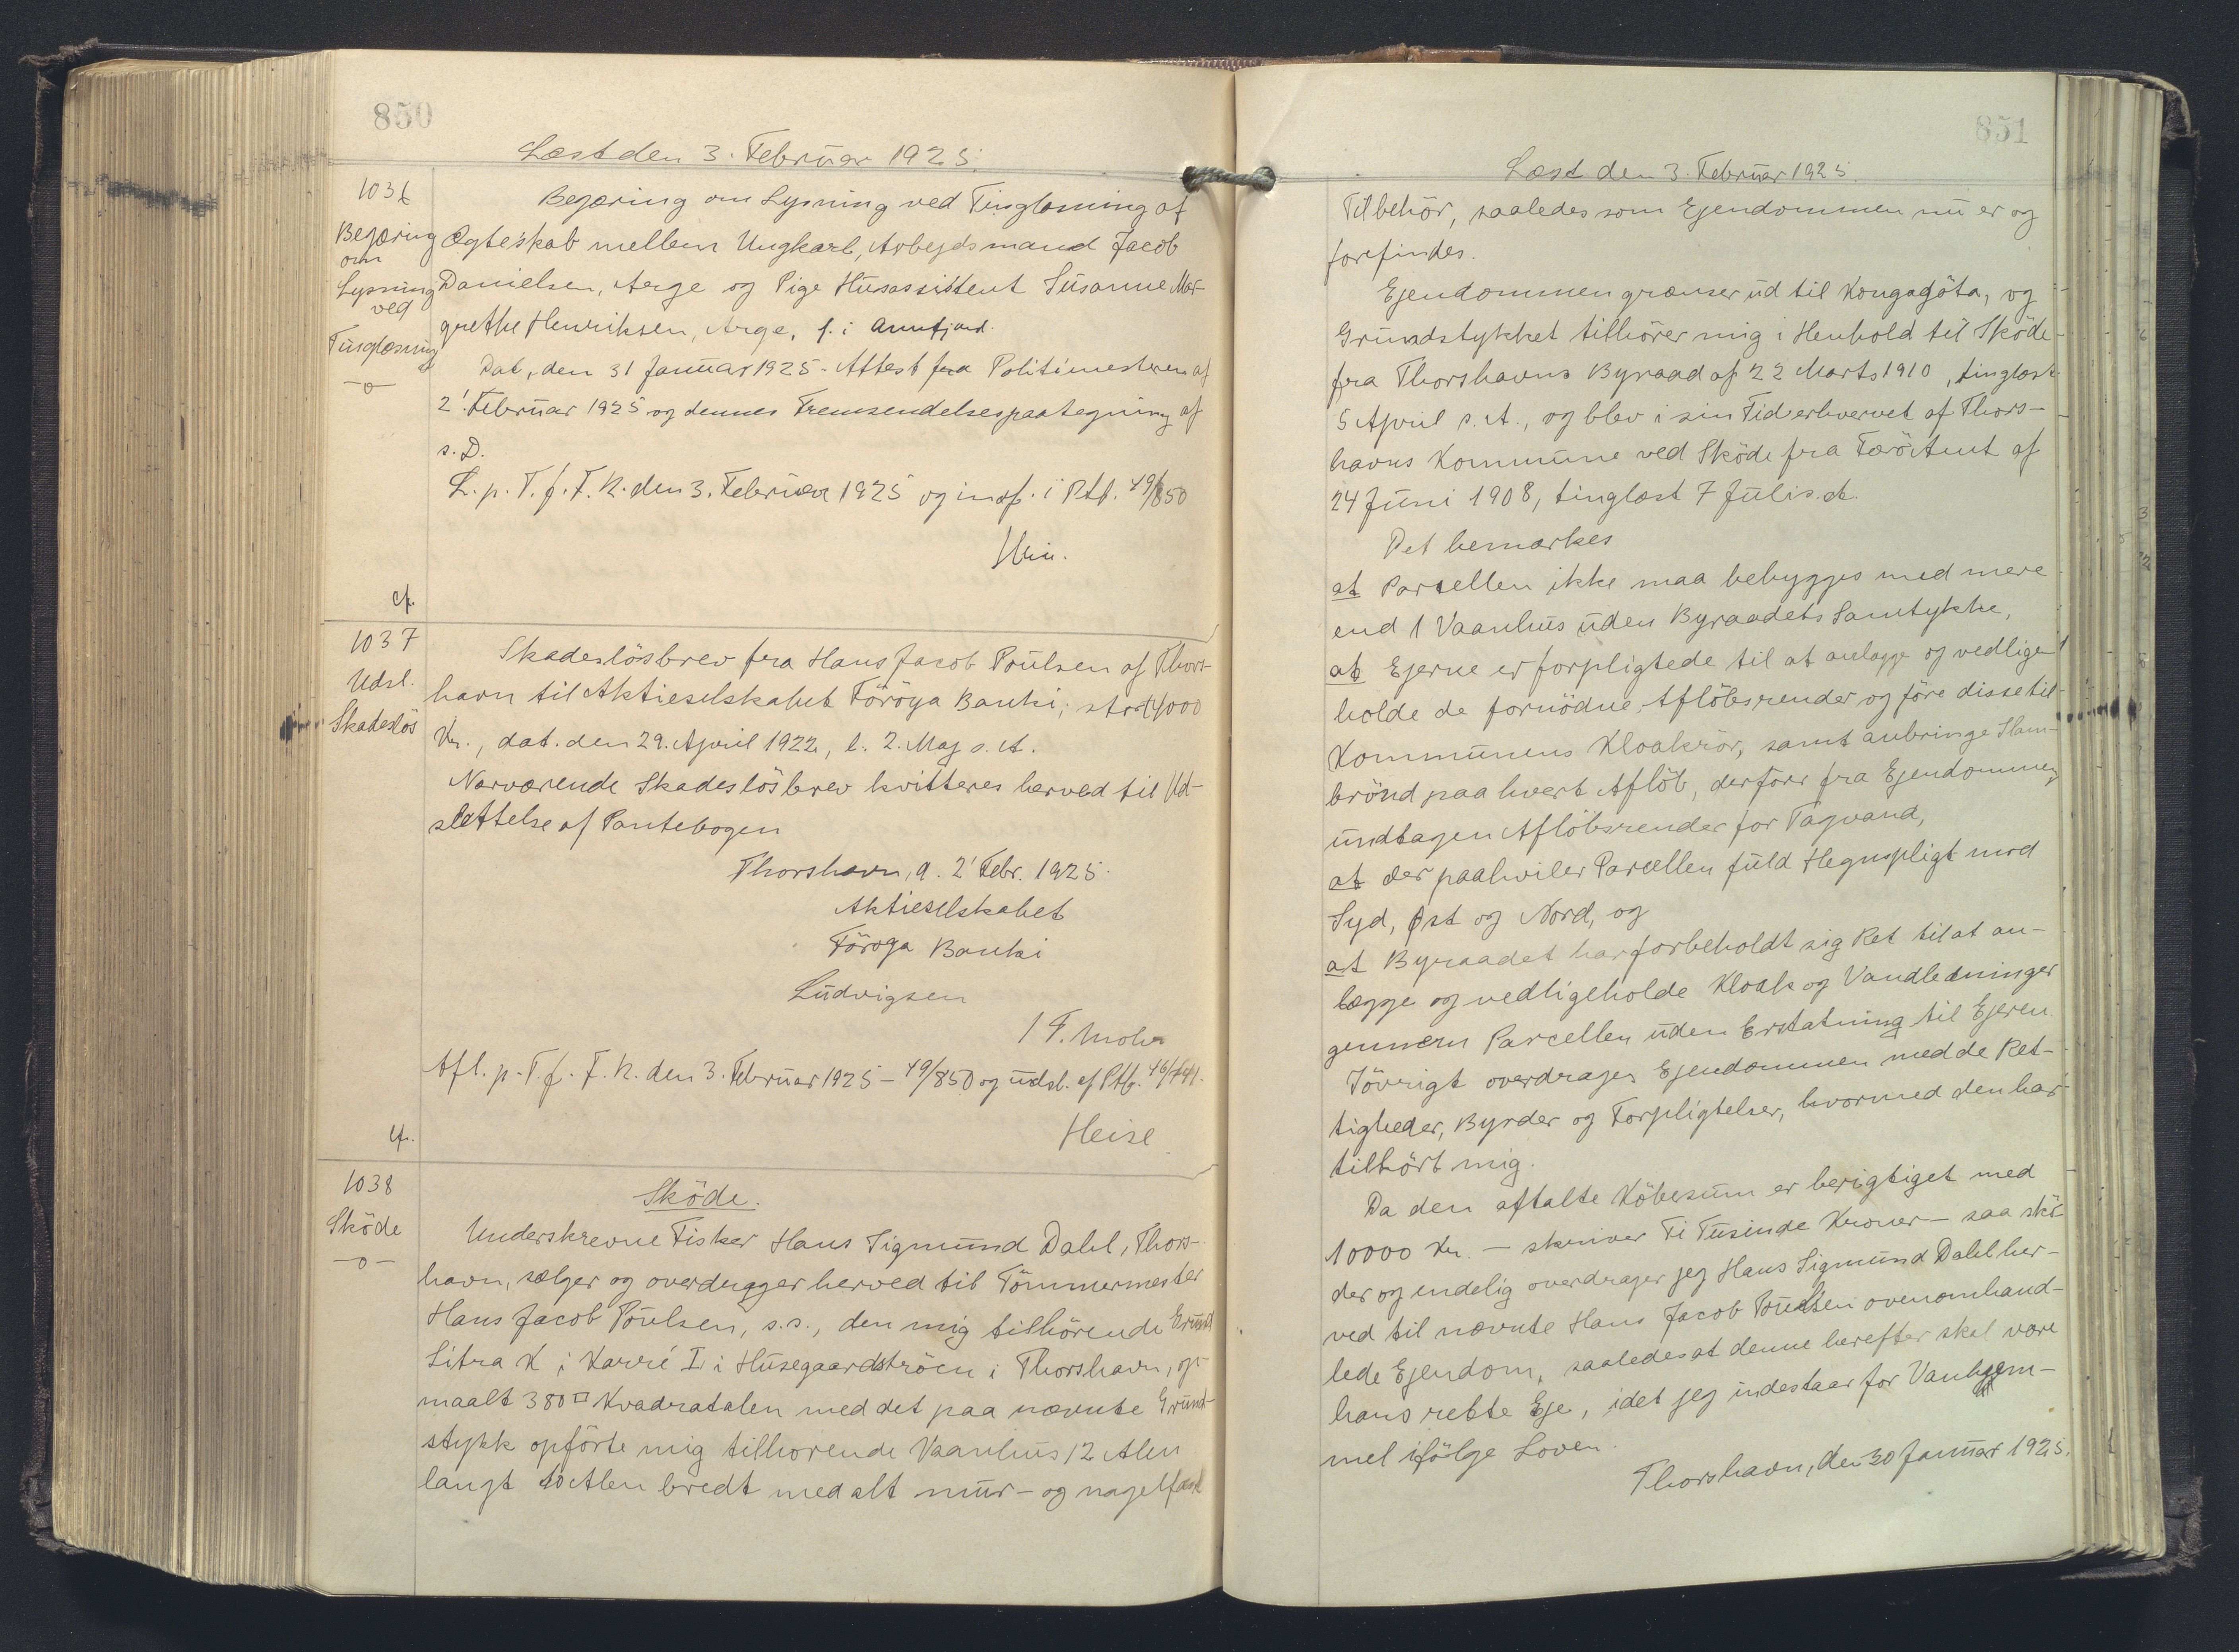 850
Læst den 3. Februar 1925.
1036
Begæring
om
Lysning
ved
Tinglæsning
-o-
Begæring om Lysning ved Tinglæsning af
Ægteskab mellem Ungkarl, Arbejdsmand Jacob
Danielsen, Arge og Pige Husassistent Susanne Mar-
grethe Henriksen, Arge, f. i Annfjord.
Dat. den 31 Januar 1925 - Attest fra Politimesteren af
2' Februar 1925 og dennes Fremsendelsespaategning af
s. D.
L. p. T. f. T. K. den 3. Februar 1925 og indf. i Ptb. 49/850
cf.
1037
Udsl.
Skadeslös
Skadeslösbrev fra Hans Jacob Poulsen af Thors-
havn til Aktieselskabet Föröya Banki, stort 4000
Kr., dat. den 29. April 1922, l. 2. Maj s. A.
Nærværende Skadeslösbrev kvitteres herved til Ud-
slettelse af Pantebogen
Thorshavn, d. 2' Febr. 1925.
Aktieselskabet
Föroya Banki
Ludvigsen
/ F. Mohr
Afl. p. T. f. T. K. den 3. Februar 1925 - 49/850 og udsl. af Ptb. 46/
Heise
cf.
1038
Sköde
-o-
Sköde.
Underskrevne Fisker Hans Sigmund Dahl, Thors-
havn, sælger og overdrager herved til Tömmermester
Hans Jacob Poulsen, s. s., den mig tilhörende Grund
Litra K i Karré I i Husegaardströen i Thorshavn, op-
maalt 380 □ Kvadratalen med det paa nævnte Grund-
stykk opförte mig tilhorende Vaanhus 12 Alen
langt 10 Alen bredt med alt mur- og nagelfast
851
Læst den 3. Februar 1925.
Tilbehör, saaledes som Ejendommen nu er og
forefindes.
Ejendommen grænser ud til Kongagöta, og
Grundstykket tilhörer mig i Henhold til Sköde
fra Thorshavns Byraad af 22 Marts 1910, tinglæst
5 April s. A., og blev i sin Tid erhvervet af Thors-
havns Kommune ved Sköde fra Færö Amt af
24 Juni 1908, tinglæst 7 Juli s. A.
Det bemærkes
at Parcellen ikke maa bebygges med mere
end 1 Vaanhus uden Byraadets Samtykke,
at Ejerne er forpligtede til at anlægge og vedlige-
holde de fornödne Aflöbsrender og före disse til
Kommunens Kloakrör, samt anbringe Slam-
brönd paa hvert Aflöb, der förer fra Ejendommen,
undtagen Aflöbsrender for Tagvand,
at der paahviler Parcellen fuld Hegnspligt mod
Syd, Øst og Nord, og
at Byraadet har forbeholdt sig Ret til at an-
lægge og vedligeholde Kloak og Vandledninger
gennem Parcellen uden Erstatning til Ejeren.
Iövrigt overdrages Ejendommen med de Ret-
tigheder, Byrder og Forpligtelser, hvormed den har
tilhört mig.
Da den aftalte Köbesum er berigtiget med
10000 Kr. - skriver Ti Tusinde Kroner - saa skö-
der og endelig overdrager jeg Hans Sigmund Dahl her-
ved til nævnte Hans Jacob Poulsen ovenomhand-
lede Ejendom, saaledes at denne herefter skal være
hans rette Eje, idet jeg indestaar for Vanhjem-
mel ifölge Loven.
Thorshavn, den 30 Januar 1925.